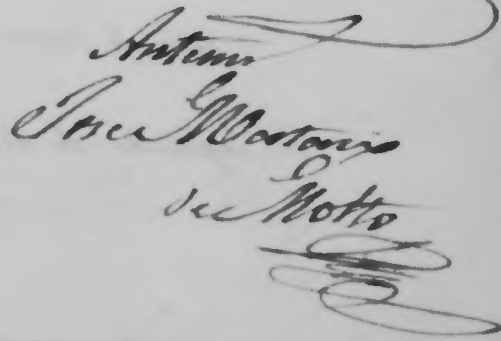 Antonio
Jose Martins
de Motto